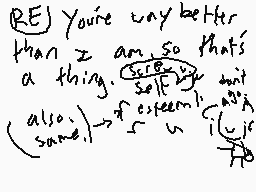 (RE) You're way better
than I am, so that's
a thing. screw
self
esteem!
don't
also,
same.